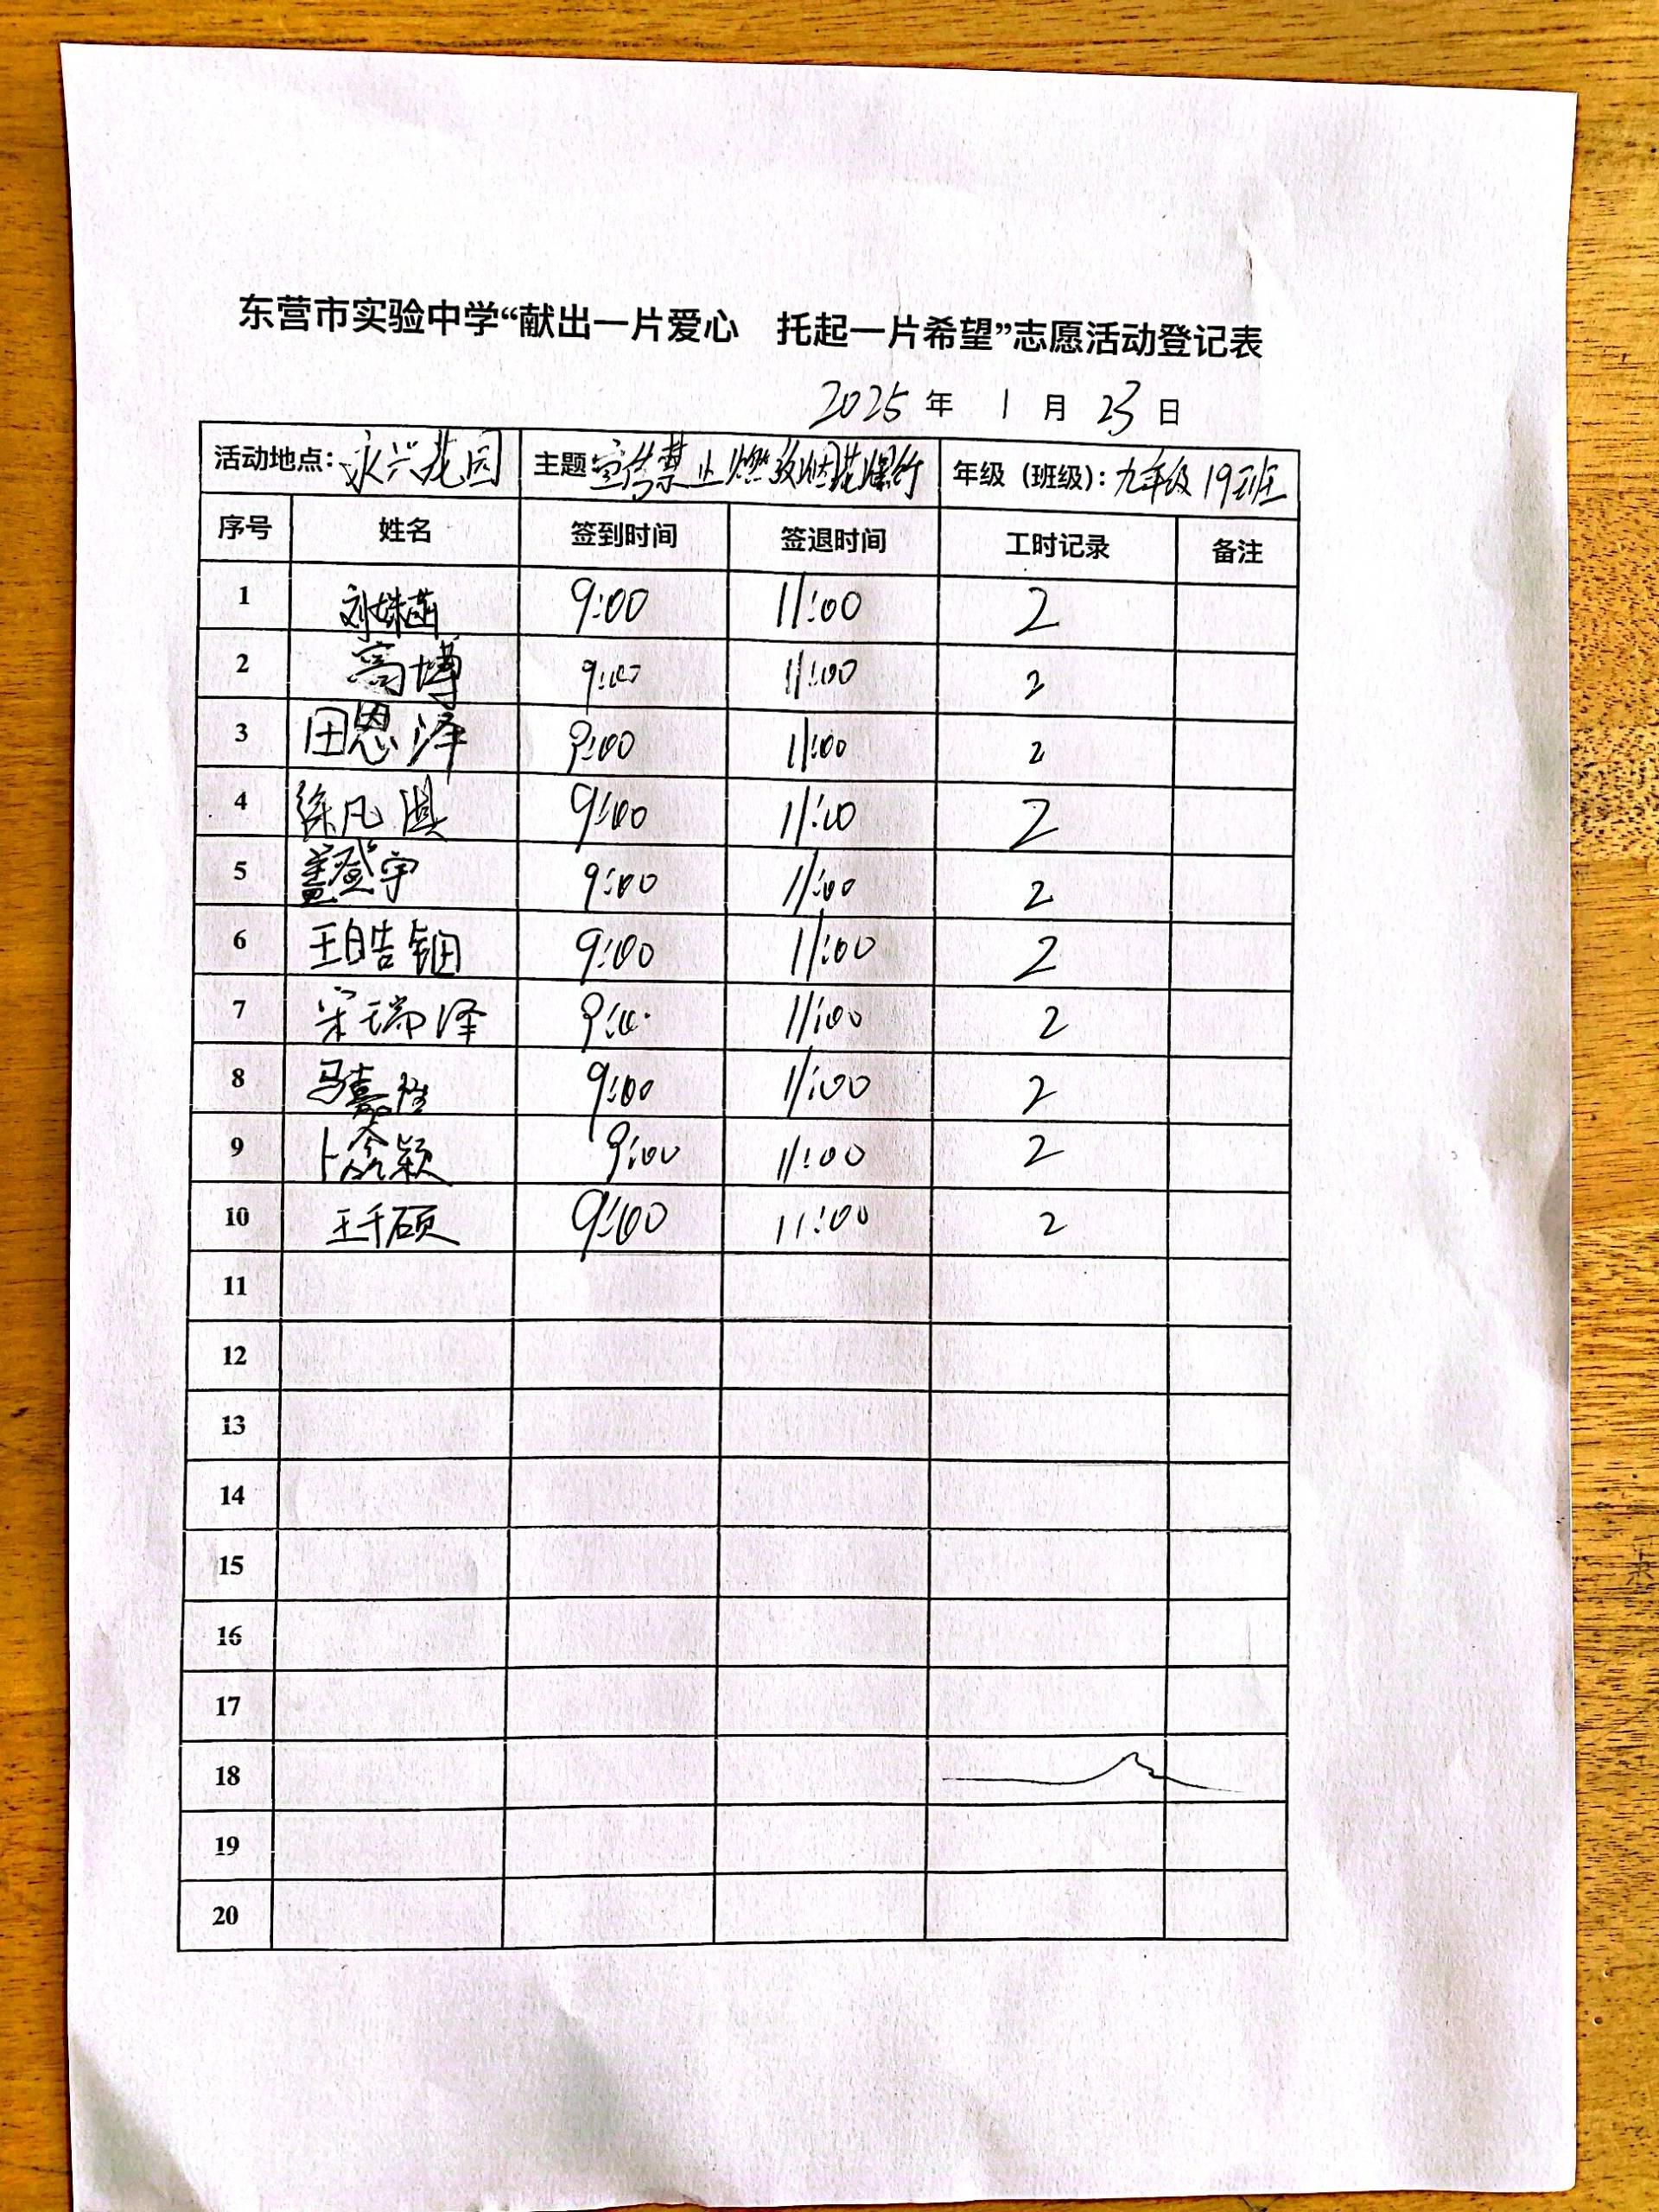 东营市实验中学“献出一片爱心 托起一片希望”志愿活动登记表
2025 年 1 月 23 日
活动地点：永兴花园 主题 宣传禁止燃放烟花爆竹 年级（班级）：九年级 19班
序号 姓名 签到时间 签退时间 工时记录 备注
1 刘姝菡 9:00 11:00 2
2 高博 9:00 11:00 2
3 田恩泽 9:00 11:00 2
4 徐凡淇 9:00 11:00 2
5 盖登宇 9:00 11:00 2
6 王皓钿 9:00 11:00 2
7 宋瑞泽 9:00 11:00 2
8 马嘉 9:00 11:00 2
9 卜鑫颖 9:00 11:00 2
10 王千硕 9:00 11:00 2
11
12
13
14
15
16
17
18
19
20